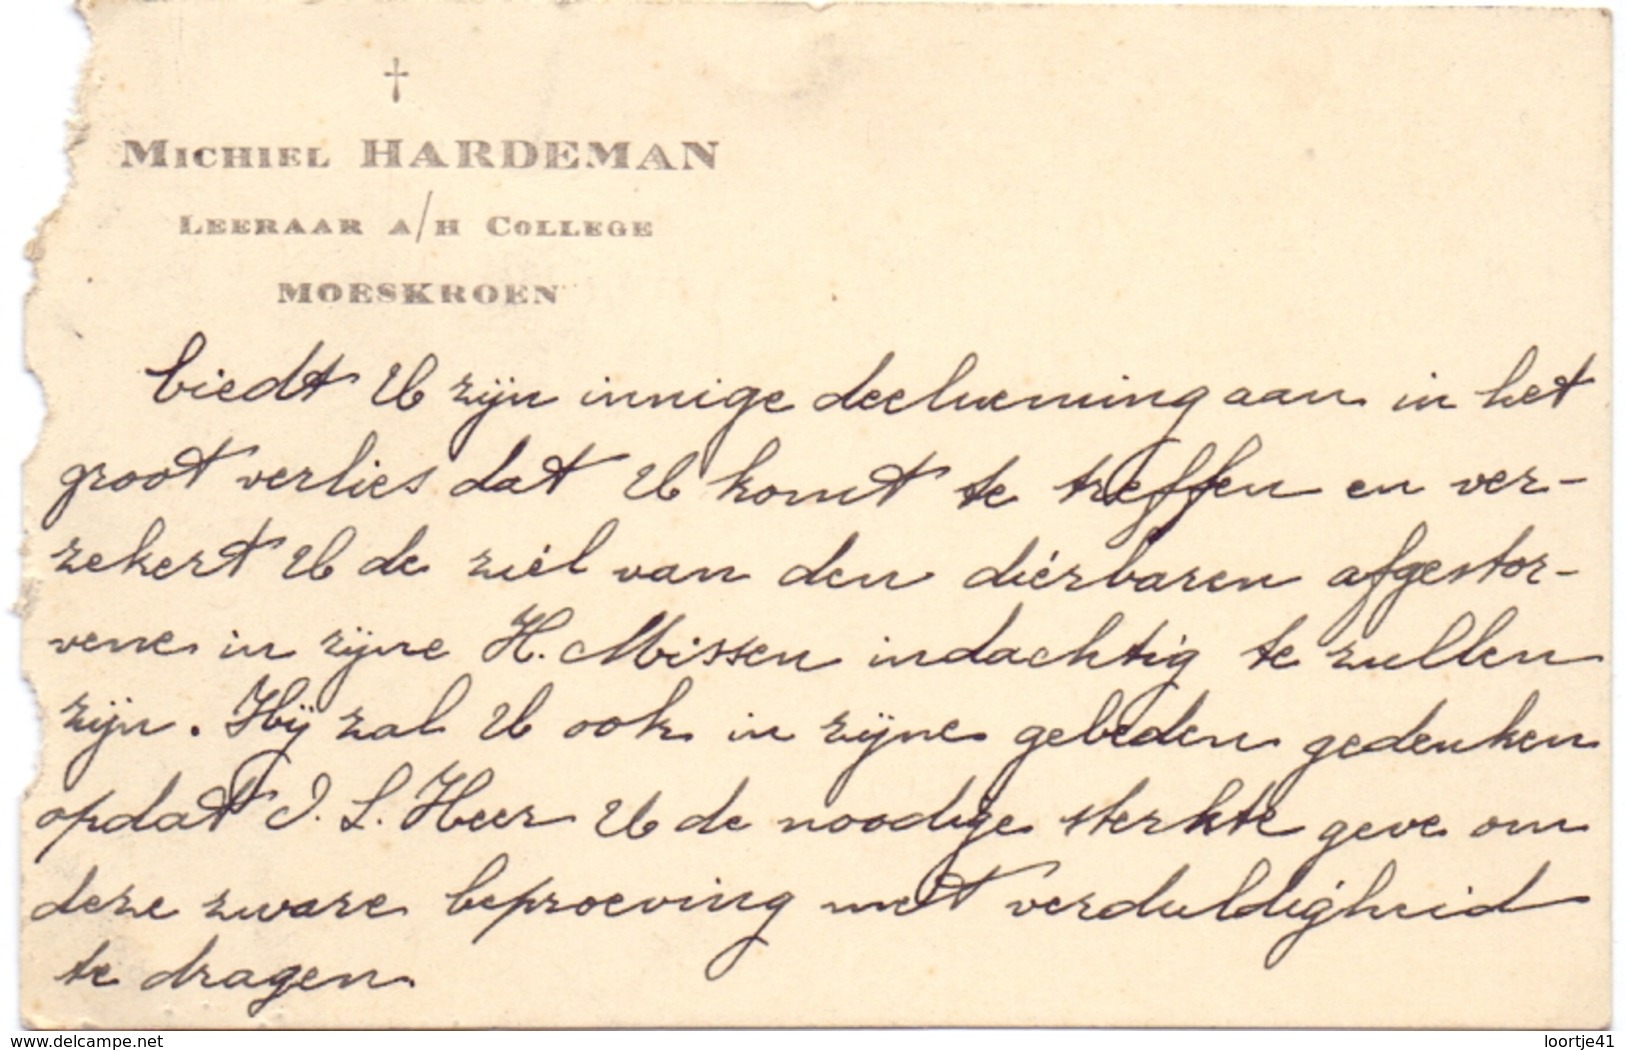 †
MICHIEL HARDEMAN
LEERAAR A/H COLLEGE
MOESKROEN
biedt U zijn innige deelneming aan in het
groot verlies dat U komt te treffen en ver-
zekert U de ziel van den dierbaren afgestor-
vene in zijne H. Missen indachtig te zullen
zijn. Hij zal U ook in zijne gebeden gedenken
opdat O. L. Heer U de noodige sterkte geve om
deze zware beproeving met verduldigheid
te dragen.
www.delcampe.net
loortje41